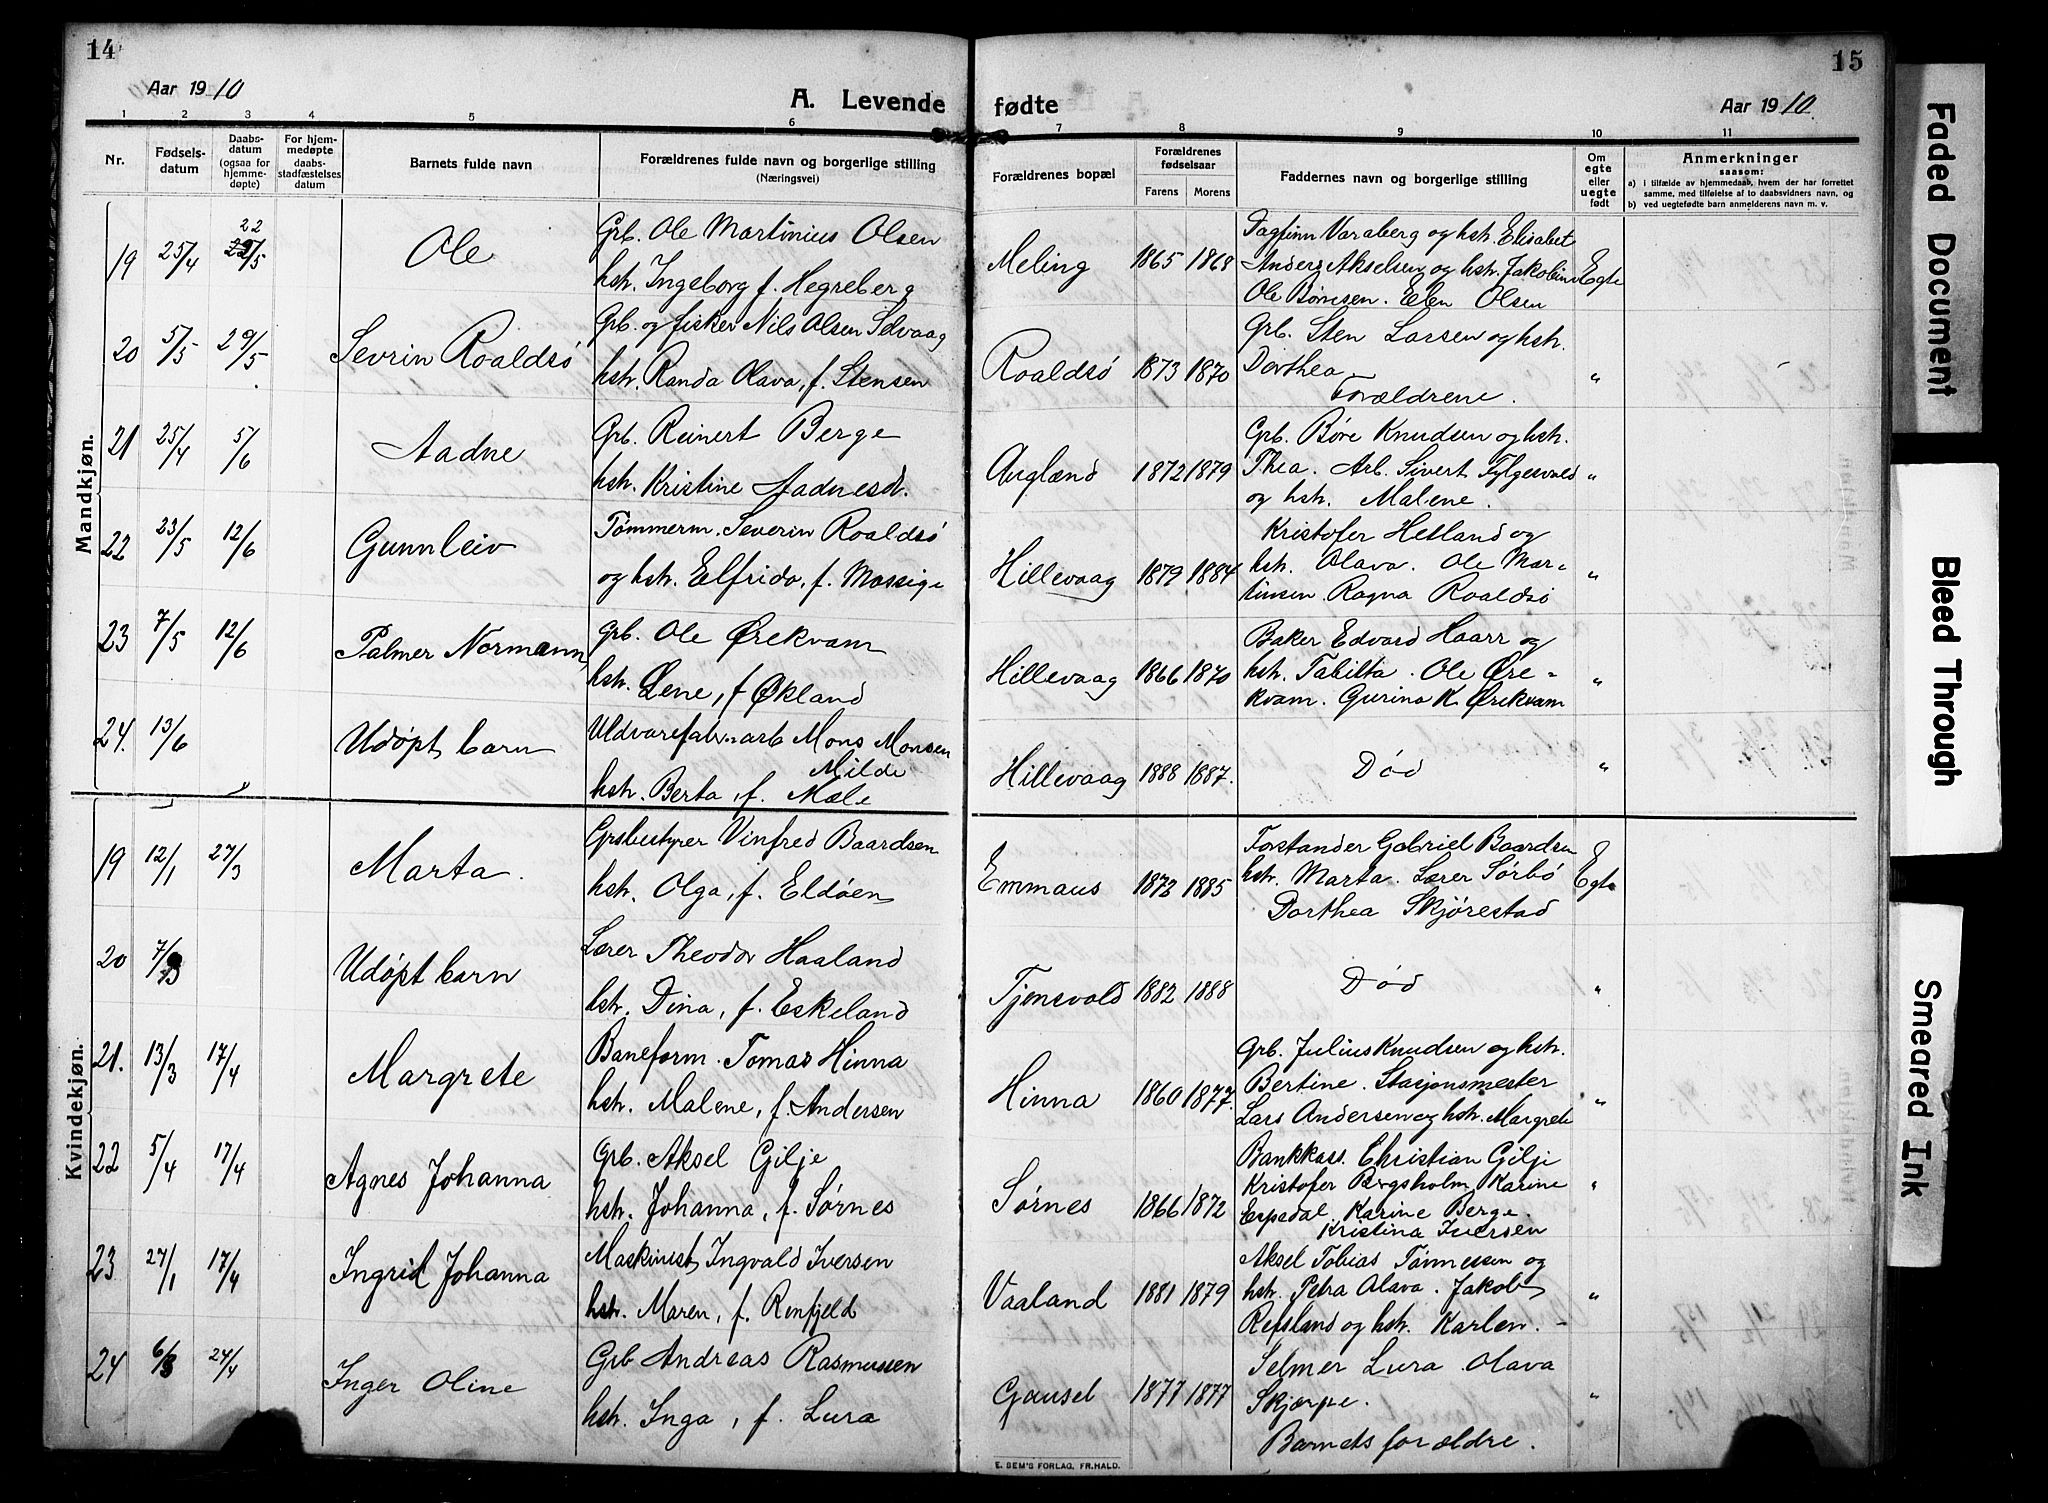 14
Aar 1910
A. Levende
1 2 3 4 5 6
Nr.
Fødselsdatum
Daabsdatum (ogsaa for hjemmedøpte)
For hjemmedøpte daabsstadfæstelses datum
Barnets fulde navn
Forældrenes fulde navn og borgerlige stilling
(Næringsvei)
Mandkjøn.
19 25/4 22 22/5 Ole
Grb. Ole Martinius Olsen
hstr. Ingeborg f. Hegreberg
20 5/5 29/5 Sevrin Roaldsø
Grb. og fisker Nils Olsen Selvaag
hstr. Randa Olava, f. Stensen
21 25/4 5/6 Aadne
Grb. Reinert Berge
hstr. Kristine Aadnesd.
22 23/5 12/6 Gunnleiv
Tømmerm. Severin Roaldsø
og hstr. Elfrida, f. Mossige
23 7/5 12/6 Palmer Normann
Grb. Ole Ørekvam
hstr. Lene, f. Økland
24. 13/6 Udøpt barn
Uldvarefabr. arb Mons Monsen
Milde
hstr. Berta, f. Mæle
Kvindekjøn.
19 12/1 27/3 Marta.
Grbestyrer Vinfred Baardsen
hstr. Olga, f. Eldøen
20 7/3 Udøpt barn
Lærer Theodor Haaland
hstr. Dina, f. Eskeland
21. 13/3 17/4 Margrete
Baneform. Tomas Hinna
hstr. Malene, f. Andersen
22 5/4 17/4 Agnes Johanna
Grb. Aksel Gilje
hstr. Johanna, f. Sørnes
23 27/1 17/4 Ingrid Johanna
Maskinist Ingvald Iversen
hstr. Maren, f. Renfjeld
24 6/3 24/4 Inger Oline
Grb Andreas Rasmussen
hstr. Inga, f. Lura
15
fødte
Aar 1910.
7 8 9 10 11
Forældrenes bopæl
Forældrenes fødselsaar
Farens Morens
Faddernes navn og borgerlige stilling
Om egte eller uegte født
Anmerkninger
saasom:
a) i tilfælde av hjemmedaab, hvem der har forrettet samme, med tilføielse af to daabsvidners navn, og
b) ved uegtefødte barn anmelderens navn m. v.
Meling 1865 1868
Fagtinn Varaberg og hstr. Elisabet
Anders Akselsen og hstr. Jakobine Egte
Ole Børresen. Elen Olsen
Roaldsø 1873 1870
Grb. Sten Larsen og hstr.
Dorthea. "
Forældrene.
Augland 1872 1879
Grb. Børe Knudsen og hstr.
Thea. Arb. Sivert Fylgesvold "
og hstr. Malene.
Hillevaag 1879 1884
Kristofer Hetland og
hstr. Olava. Ole Mar= "
tinsen. Ragna Roaldsø
Hillevaag 1866 1870
Baker Edvard Haarr og
hstr. Tabitta. Ole Øre= "
kvam. Gurina K. Ørekvam
Hillevaag 1888 1887. Død "
Emmaus 1872 1885
Forstander Gabriel Baardsen
hstr. Marta. Lærer Sørbø Egte
Dorthea Skjørestad
Tjensvold 1882 1888 Død "
Hinna 1860 1877.
Grb. Julius Knudsen og hstr.
Bertine. Stasjonsmester "
Lars Andersen og hstr. Margrete
Sørnes 1866 1872
Bankkass. Christian Gilje
Kristofer Bergsholm Karine "
Espedal. Karine Berge.
Kristina Iversen
Vaaland 1881 1879
Aksel Tobias Tønnessen og
hstr. Petra Olava. Jakob "
Refsland og hstr. Karlen. -
Gausel 1877 1877
Selmer Lura Olava
Skjærpe. "
Barnets forældre.
E. SEM'S FORLAG, FR.HALD.
Faded Document
Bleed Through
Smeared Ink